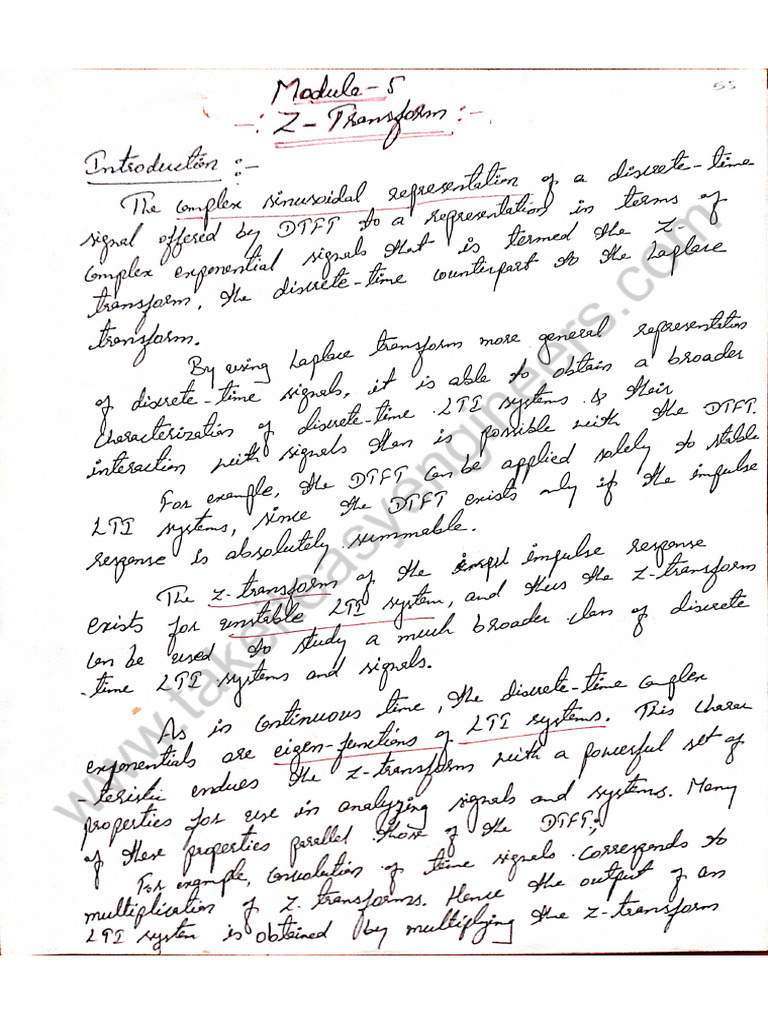 55
Module-5
-: Z-Transform :-
Introduction :-
The complex sinusoidal representation of a discrete-time
signal offered by DTFT to a representation in terms of
complex exponential signals that is termed the Z-
transform, the discrete-time counterpart to the Laplace
transform.
By using Laplace transform more general representation
of discrete-time signals, it is able to obtain a broader
characterization of discrete-time LTI systems & their
interaction with signals than is possible with the DTFT.
For example, the DTFT can be applied solely to stable
LTI systems, since the DTFT exists only if the impulse
response is absolutely summable.
The Z-transform of the impulse response
exists for unstable LTI system, and thus the Z-transform
can be used to study a much broader class of discrete
-time LTI systems and signals.
As in continuous time, the discrete-time complex
exponentials are eigen-functions of LTI systems. This charac
-teristic endues the Z-transform with a powerful set of
properties for use in analyzing signals and systems. Many
of these properties parallel those of the DTFT;
For example, convolution of time signals corresponds to
multiplication of Z. transforms. Hence the output of an
LTI system is obtained by multiplying the Z-transform
www.takeiteasyengineers.com